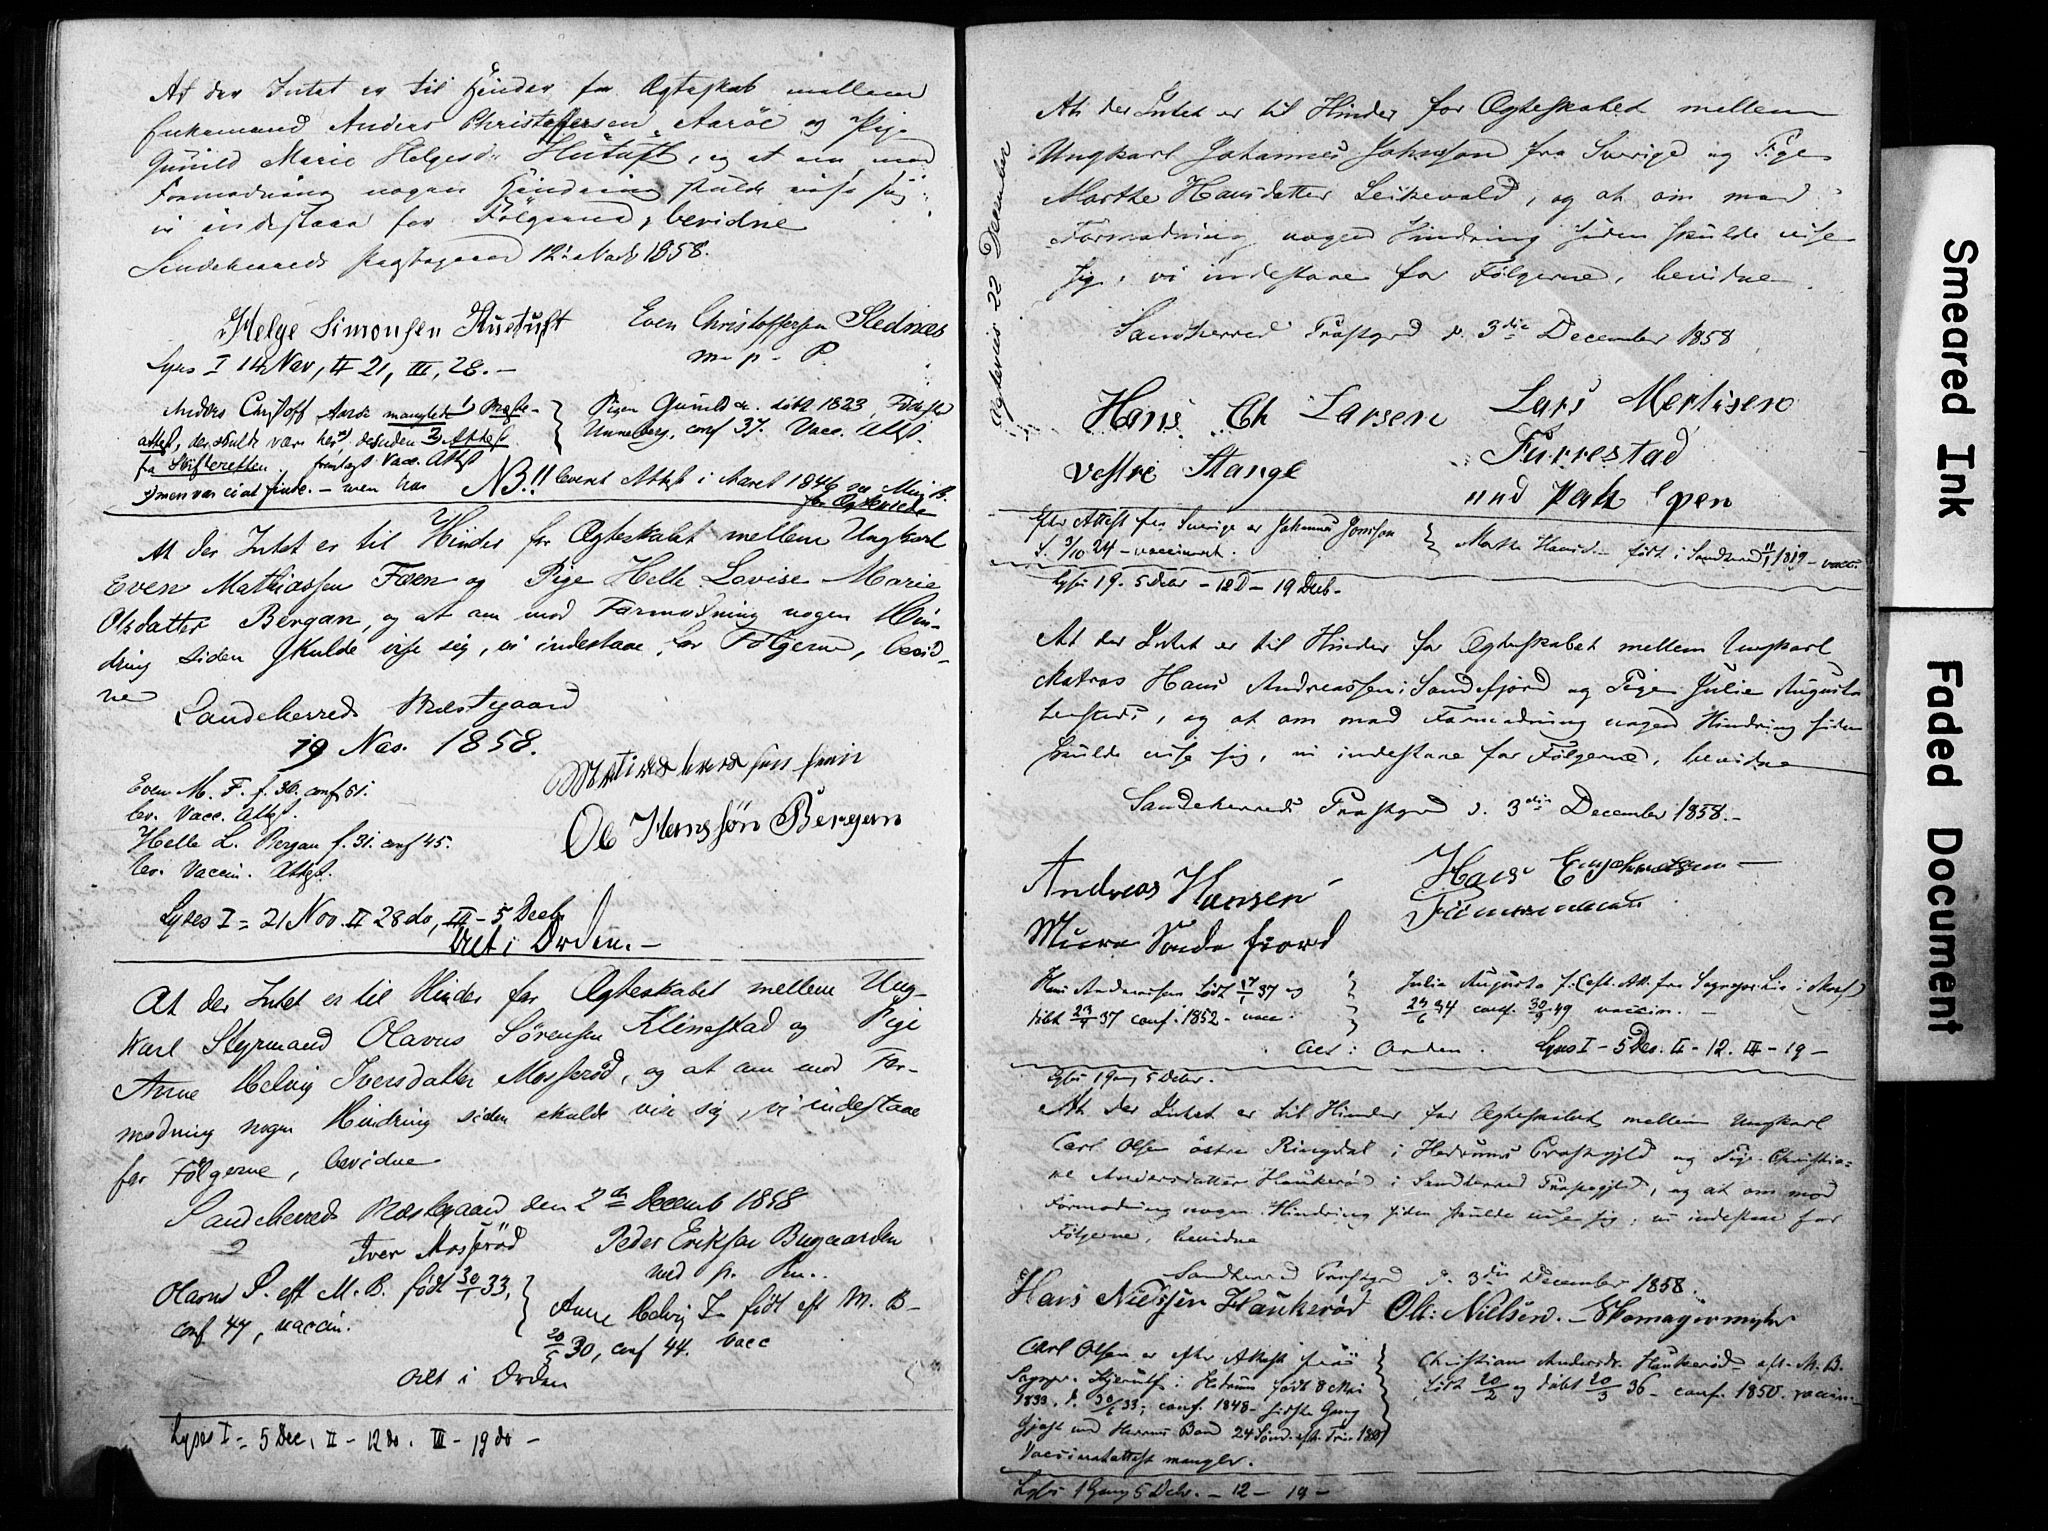 At der Intet er til Hinder for Ægteskab mellem
Enkemand Anders Christoffersen Aarøe og Pige
Gunild Marie Helgesd. Hustuft, og at om mod
Formodning nogen Hindring skulde vise sig,
vi indestaae for Følgerne, bevidne
Sandeherreds Præstegaard 12. Novb 1858.
Helge Simonsen Hustuft
Even Christoffersen Stednæs
m. p. P.
Lyses I 14 Nov, II 21, III, 28. –
Anders Christoff Aarøe manglede Præste-
attest, der skulde være her, desuden 2 Attest
fra Skifteretten. fremlagt Vacc. Attest
men var ei at finde. – men har
Pigen Gunild er døbt 1823,
Unneberg, conf 37. Vacc. Attst.
NB!! levert Attest i Aaret 1846 se Min. B.
for Ægteviede
At der Intet er til Hinder for Ægteskabet mellem Ungkarl
Even Mathiassen Fœen og Pige Helle Lovise Marie
Olsdatter Bergan, og at om mod Formodning nogen Hin-
dring siden skulde vise sig, vi indestaae for Følgerne, bevid-
ne
Sandeherreds Præstegaard
19 Nov. 1858.
Even M. F. f. 30. conf 51.
lev. Vacc. Attst.
Ole Hanssøn Bergan
Helle L. Bergan f. 31. conf 45.
lev. Vaccin. Attst.
Lyses I = 21 Nov. II 28 do, III – 5 Decb
Alt i Orden. –
At der Intet er til Hinder for Ægteskabet mellem Ung-
karl Styrmand Olavus Sørensen Klinestad og Pige
Anne Helvig Iversdatter Mosserød, og at om mod For-
modning nogen Hindring siden skulde vise sig, vi indestaae
for Følgerne, bevidne
Sandeherreds Præstegaard den 2den Decemb 1858
Iver Mosserød
Peder Eriksen Bugaarden
med p. Pen.
Olavus S. eft M. B. født 30/1 33.
conf 47, vaccin.
Anne Helvig I. født eft M. B–
20/5 30, conf 44. Vacc
Alt i Orden
Lyses I = 5 Dec, II – 12 do. III – 19 do –
Ægteviet 22 December
At der Intet er til Hinder for Ægteskabet mellem
Ungkarl Johannes Johnson fra Sverige og Pige
Marthe Hansdatter Leikevold, og at om mod
Formodning nogen Hindring siden skulde vise
sig, vi indestaae for Følgerne, bevidne
Sandherred Præstgrd d. 3die December 1858
Hans Ch Larsen
Lars Mertisen
Vestre Stange
Furrestad
med Paah Pen
Efter Attest fra Sverige er Johannes Jonsson
f. 3/10 24 – vaccineret.
Marthe Hansd. født i Sandherred 11/1 1819 – vacc.
Lyst 1 G. 5 Debr – 12 D – 19 Decb.
At der Intet er til Hinder for Ægteskabet mellem Ungkarl
Matros Hans Andreassen i Sandefjord og Pige Julie Augusta
, og at om mod Formodning nogen Hindring siden
skulde vise sig, vi indestaae for Følgerne, bevidne
Sandeherreds Præstgrd d. 3die December 1858. –
Andreas Hansen
Hans
Murer Sandefjord
Hans Andreassen født 17/1 37 og
døbt 23/4 37 conf. 1852 – vacc.
Julie Augusta f. (eft. Att. fra Sogneprest i Moss)
24/6 34 conf. 30/9 49 vaccin. –
Alt i Orden. Lyses I – 5 Dec. II – 12. III – 19 –
Lyst 1 Gang 5 Debr.
At der Intet er til Hinder for Ægteskabet mellem Ungkarl
Carl Olsen østre Ringdal i Hedrums Præstgjeld og Pige Christia-
ne Andersdatter Haukerød i Sandherred Præstgjeld, og at om mod
Formodning nogen Hindring siden skulde vise sig, vi indestaae for
Følgerne, bevidne
Sandherred Præstgrd d. 3die December 1858.
Hans Nielssen Haukerød Ole Nielsen. – Skomagermester
Carl Olsen er efter Attest fra
Sognepr. Hjerulf i Hedrum født 8 Mai
1833, d. 30/6 33; conf. 1848 – sidste Gang
Gjest ved Herrens Bord 24 Sønd. eft. Trin. 1857
Vaccinatattest mangler.
Christiane Andersdr. Haukerød eft. M. B.
født 20/2 og døbt 20/3 36 – conf. 1850. vaccin –
Lyst 1 Gang 5 Debr. – 12 – 19 –
Smeared Ink
Faded Document